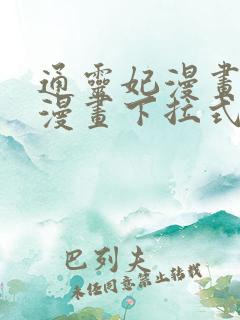 通靈妃漫畫
漫畫下拉式
巴列夫
未任同意禁止转载